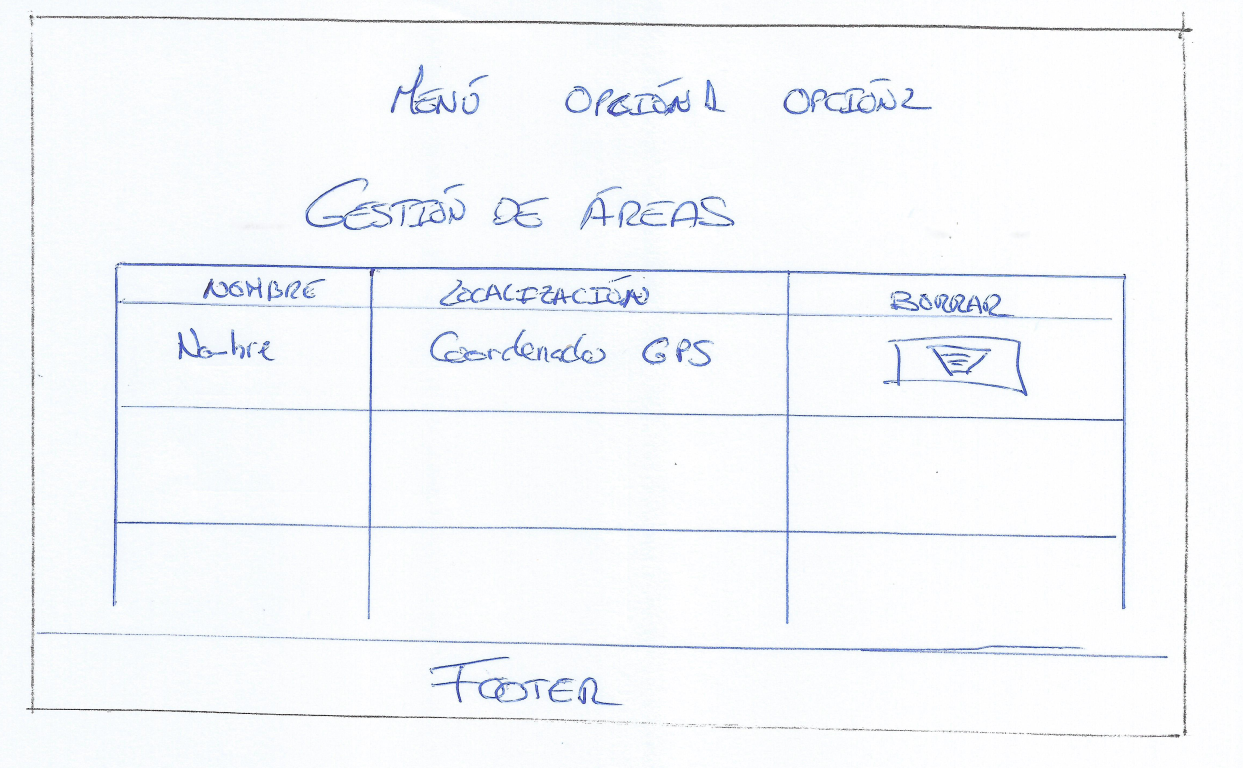 MENÚ OPCIÓN 1 OPCIÓN 2
GESTIÓN DE ÁREAS
NOMBRE LOCALIZACIÓN BORRAR
Nombre Coordenadas GPS
FOOTER